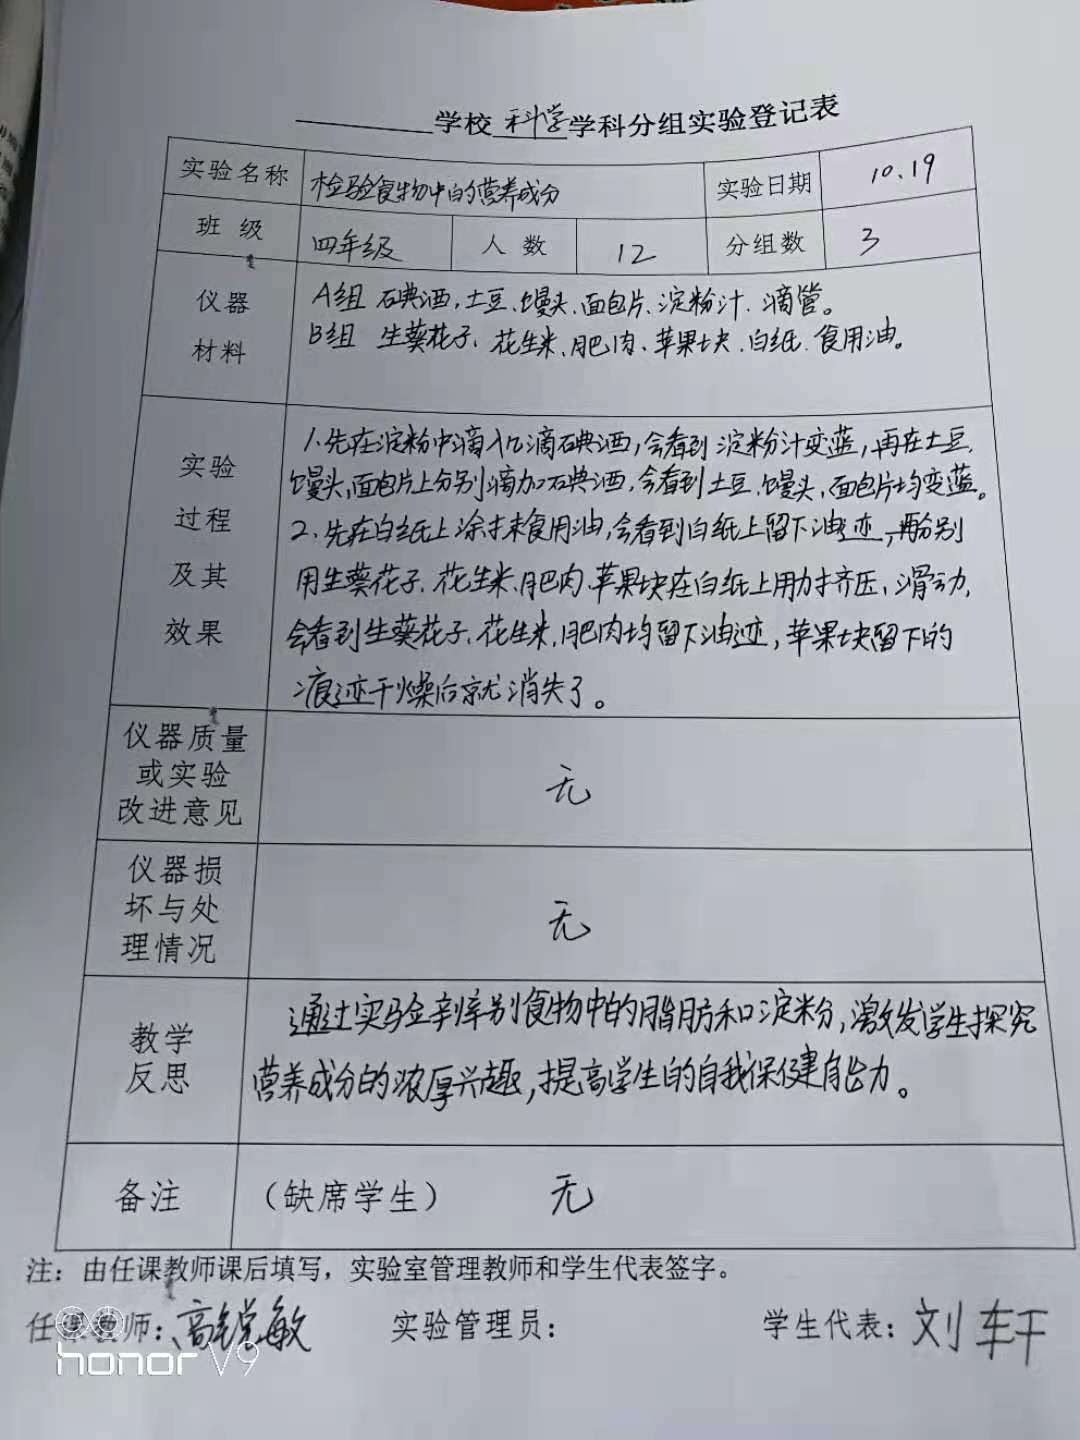 学校 科学 学科分组实验登记表
实验名称 检验食物中的营养成分 实验日期 10.19
班级 四年级 人数 12 分组数 3
仪器
材料
A组 碘酒,土豆、馒头、面包片、淀粉汁、滴管。
B组 生葵花子、花生米、肥肉、苹果块、白纸、食用油。
实验
过程
及其
效果
1、先在淀粉中滴入几滴碘酒,会看到淀粉汁变蓝,再在土豆、
馒头,面包片上分别滴加碘酒,会看到土豆、馒头、面包片均变蓝。
2、先在白纸上涂抹食用油,会看到白纸上留下油迹,再分别
用生葵花子、花生米、肥肉、苹果块在白纸上用力挤压、滑动,
会看到生葵花子、花生米、肥肉均留下油迹,苹果块留下的
痕迹干燥后就消失了。
仪器质量
或实验
改进意见
无
仪器损
坏与处
理情况
无
教学
反思
通过实验辨别食物中的脂肪和淀粉,激发学生探究
营养成分的浓厚兴趣,提高学生的自我保健能力。
备注 (缺席学生) 无
注:由任课教师课后填写,实验室管理教师和学生代表签字。
任课教师: 高锐敏 实验管理员: 学生代表: 刘轩
honor V9